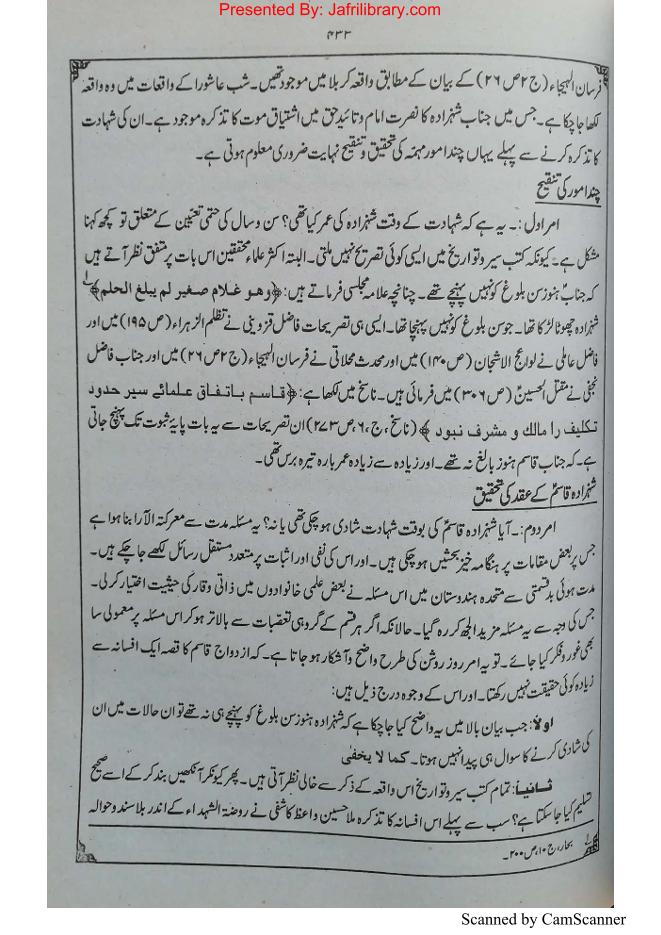 Presented By: Jafrilibrary.com
۴۳۳
فرسان الہیجاء (ج۲ ص۲۶) کے بیان کے مطابق واقعہ کربلا میں موجود تھیں۔ شب عاشورا کے واقعات میں وہ واقعہ
لکھا جا چکا ہے۔ جس میں جناب شہزادہ کا نصرت امام و تائید حق میں اشتیاق موت کا تذکرہ موجود ہے۔ ان کی شہادت
کا تذکرہ کرنے سے پہلے یہاں چند امور مہمہ کی تحقیق و تنقیح نہایت ضروری معلوم ہوتی ہے۔
چند امور کی تنقیح
امر اول:۔ یہ ہے کہ شہادت کے وقت شہزادہ کی عمر کیا تھی؟ سن و سال کی حتمی تعیین کے متعلق تو کچھ کہنا
مشکل ہے۔ کیونکہ کتب سیر و تواریخ میں ایسی کوئی تصریح نہیں ملتی۔ البتہ اکثر علماء محققین اس بات پر متفق نظر آتے ہیں
کہ جنابؑ ہنوز سن بلوغ کو نہیں پہنچے تھے۔ چنانچہ علامہ مجلسی فرماتے ہیں: ﴿وهو غلام صغیر لم یبلغ الحلم﴾ ۱
شہزادہ چھوٹا لڑکا تھا۔ جو سن بلوغ کو نہیں پہنچا تھا۔ ایسی ہی تصریحات فاضل قزوینی نے تظلم الزہراء (ص۱۹۵) میں اور
فاضل عاملی نے لواعج الاشجان (ص۱۴۰) میں اور محدث محلاتی نے فرسان الہیجاء (ج۲ ص۲۶) میں اور جناب فاضل
نجفی نے مقتل الحسینؑ (ص۳۰۶) میں فرمائی ہیں۔ ناسخ میں لکھا ہے: ﴿قاسم باتفاق علمائے سیر حدود
تکلیف را مالك و مشرف نبود﴾ (ناسخ، ج۶، ص۲۷۳) ان تصریحات سے یہ بات پایۂ ثبوت تک پہنچ جاتی
ہے۔ کہ جناب قاسم ہنوز بالغ نہ تھے۔ اور زیادہ سے زیادہ عمر بارہ تیرہ برس تھی۔
شہزادہ قاسمؑ کے عقد کی تحقیق
امر دوم:۔ آیا شہزادہ قاسمؑ کی بوقت شہادت شادی ہو چکی تھی یا نہ؟ یہ مسئلہ مدت سے معرکۃ الآرا بنا ہوا ہے
جس پر بعض مقامات پر ہنگامہ خیز بحثیں ہو چکی ہیں۔ اور اس کی نفی اور اثبات پر متعدد مستقل رسائل لکھے جا چکے ہیں۔
مدت ہوئی بدقسمتی سے متحدہ ہندوستان میں اس مسئلہ نے بعض علمی خانوادوں میں ذاتی وقار کی حیثیت اختیار کر لی۔
جس کی وجہ سے یہ مسئلہ مزید الجھ کر رہ گیا۔ حالانکہ اگر ہر قسم کے گروہی تعصبات سے بالاتر ہو کر اس مسئلہ پر معمولی سا
بھی غور و فکر کیا جائے۔ تو یہ امر روز روشن کی طرح واضح و آشکار ہو جاتا ہے۔ کہ ازدواج قاسم کا قصہ ایک افسانہ سے
زیادہ کوئی حقیقت نہیں رکھتا۔ اور اس کے وجوہ درج ذیل ہیں:
اولاً: جب بیان بالا میں یہ واضح کیا جا چکا ہے کہ شہزادہ ہنوز سن بلوغ کو پہنچے ہی نہ تھے تو ان حالات میں ان
کی شادی کرنے کا سوال ہی پیدا نہیں ہوتا۔ کما لا یخفیٰ
ثانیاً: تمام کتب سیر و تواریخ اس واقعہ کے ذکر سے خالی نظر آتی ہیں۔ پھر کیونکر آنکھیں بند کر کے اسے صحیح
تسلیم کیا جا سکتا ہے؟ سب سے پہلے اس افسانہ کا تذکرہ ملا حسین واعظ کاشفی نے روضۃ الشہداء کے اندر بلا سند و حوالہ
۱ بحار، ج۱۰، ص۲۰۰۔
Scanned by CamScanner